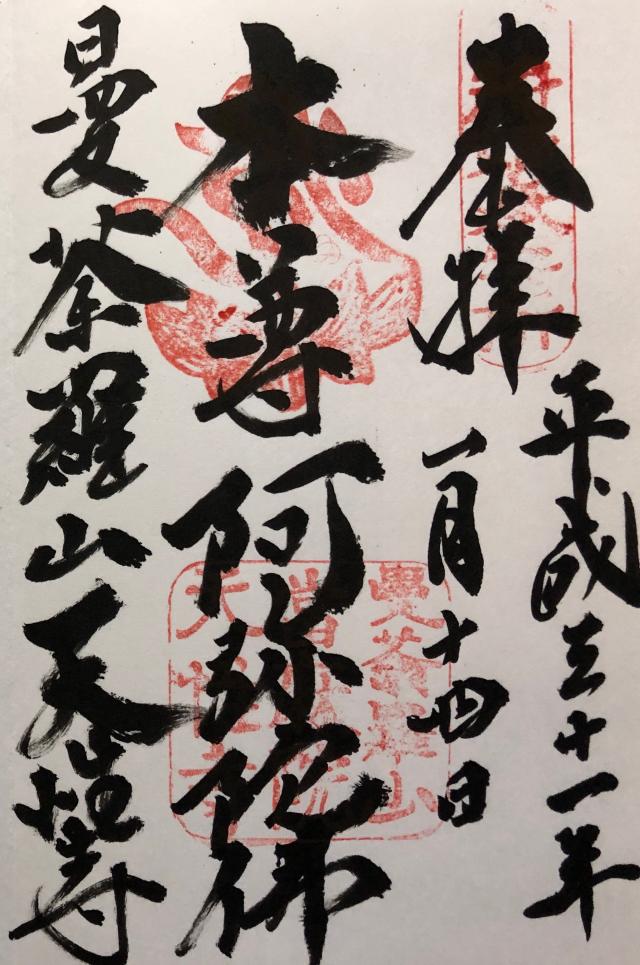 平成三十一年
奉拝
一月十四日
本尊 阿弥陀佛
曼荼羅山天性寺
曼荼羅山
當麻院
天性寺